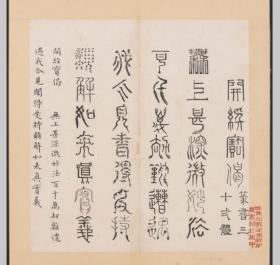 開經寶偈
篆書三
十弍體
無上甚深微妙法
百千萬劫難遭遇
我今見聞得受持
願解如來真實義
開經寶偈
無上甚深微妙法百千萬劫難遭
遇我今見聞得受持願解如來真實義